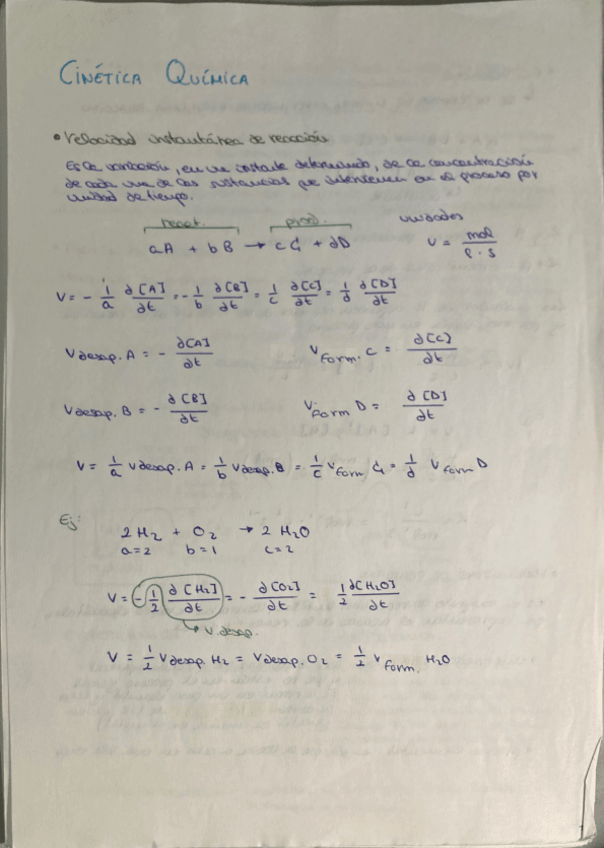 CINÉTICA QUÍMICA
• Velocidad instantánea de reacción
Es la variación, en un instante determinado, de la concentración
de cada una de las sustancias que intervienen en el proceso por
unidad de tiempo.
react. prod. unidades
aA + bB → cC + dD V = mol / l · s
V = - 1/a ∂[A]/∂t = - 1/b ∂[B]/∂t = 1/c ∂[C]/∂t = 1/d ∂[D]/∂t
V desap. A = - ∂[A]/∂t V form. C = ∂[C]/∂t
V desap. B = - ∂[B]/∂t V form D = ∂[D]/∂t
V = 1/a V desap. A = 1/b V desap. B = 1/c V form C = 1/d V form D
Ej:
2H₂ + O₂ → 2H₂O
a=2 b=1 c=2
V = - 1/2 ∂[H₂]/∂t = - ∂[O₂]/∂t = 1/2 ∂[H₂O]/∂t
→ V desap.
V = 1/2 V desap. H₂ = V desap. O₂ = 1/2 V form. H₂O